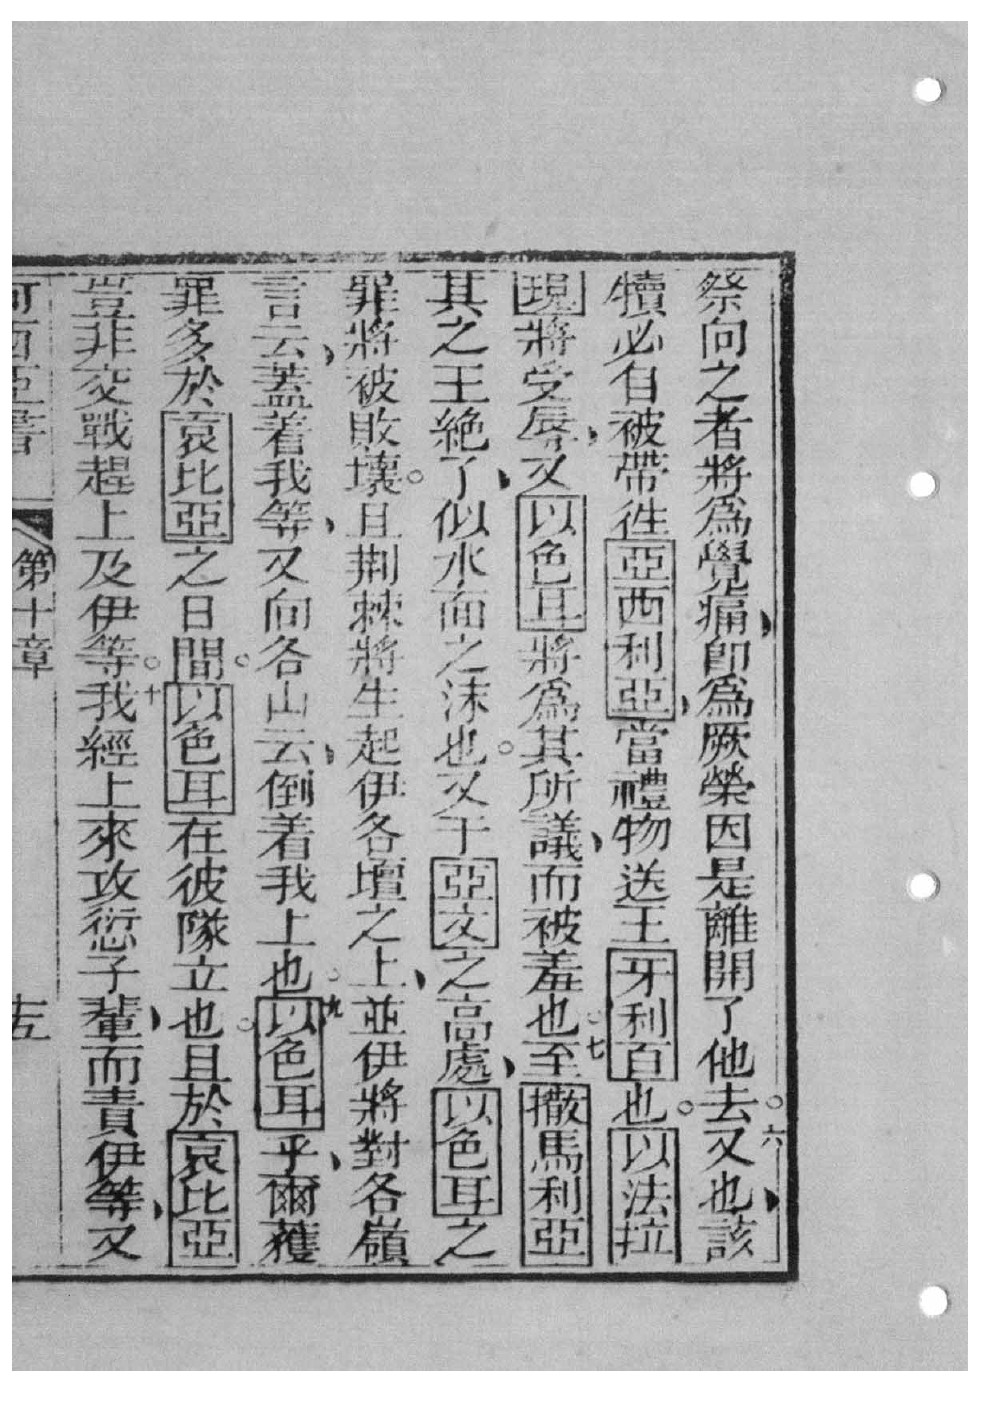 祭向之者將爲覺痛、卽爲厥榮因是離開了他去。六又也、該
犢必自被帶徃亞西利亞、當禮物送王牙利百也。以法拉
現將受辱、又以色耳將爲其所議、而被羞也。七至撒馬利亞
其之王絕了、似水面之沫也。又于亞文之高處、以色耳之
罪將被敗壞。且荆棘將生起伊各壇之上、並伊將對各嶺
言云、蓋着我等、又向各山云、倒着我上也。九以色耳乎、爾獲
罪多於袁比亞之日間。以色耳在彼隊立也。且於袁比亞
豈非交戰趕上及伊等。十我經上來攻愆子輩、而責伊等、又
何西亞書 第十章 十五